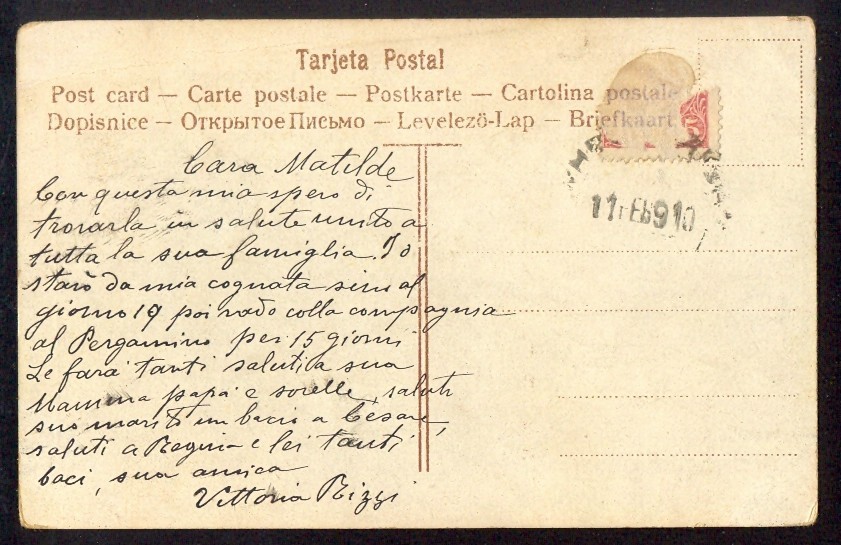 Tarjeta Postal
Post card — Carte postale — Postkarte — Cartolina postale
Dopisnice — Открытое Письмо — Levelezö-Lap — Briefkaart
11 FEB 910
Cara Matilde
Con questa mia spero di
trovarla in salute unito a
tutta la sua famiglia. Io
starò da mia cognata sino al
giorno 19 poi vado colla compagnia
al Pergamino per 15 giorni
Le farà tanti saluti a sua
Mamma papà e sorelle, saluti
suo marito un bacio a Cesare,
saluti a e lei tanti
baci, sua amica
Vittoria Rizzi